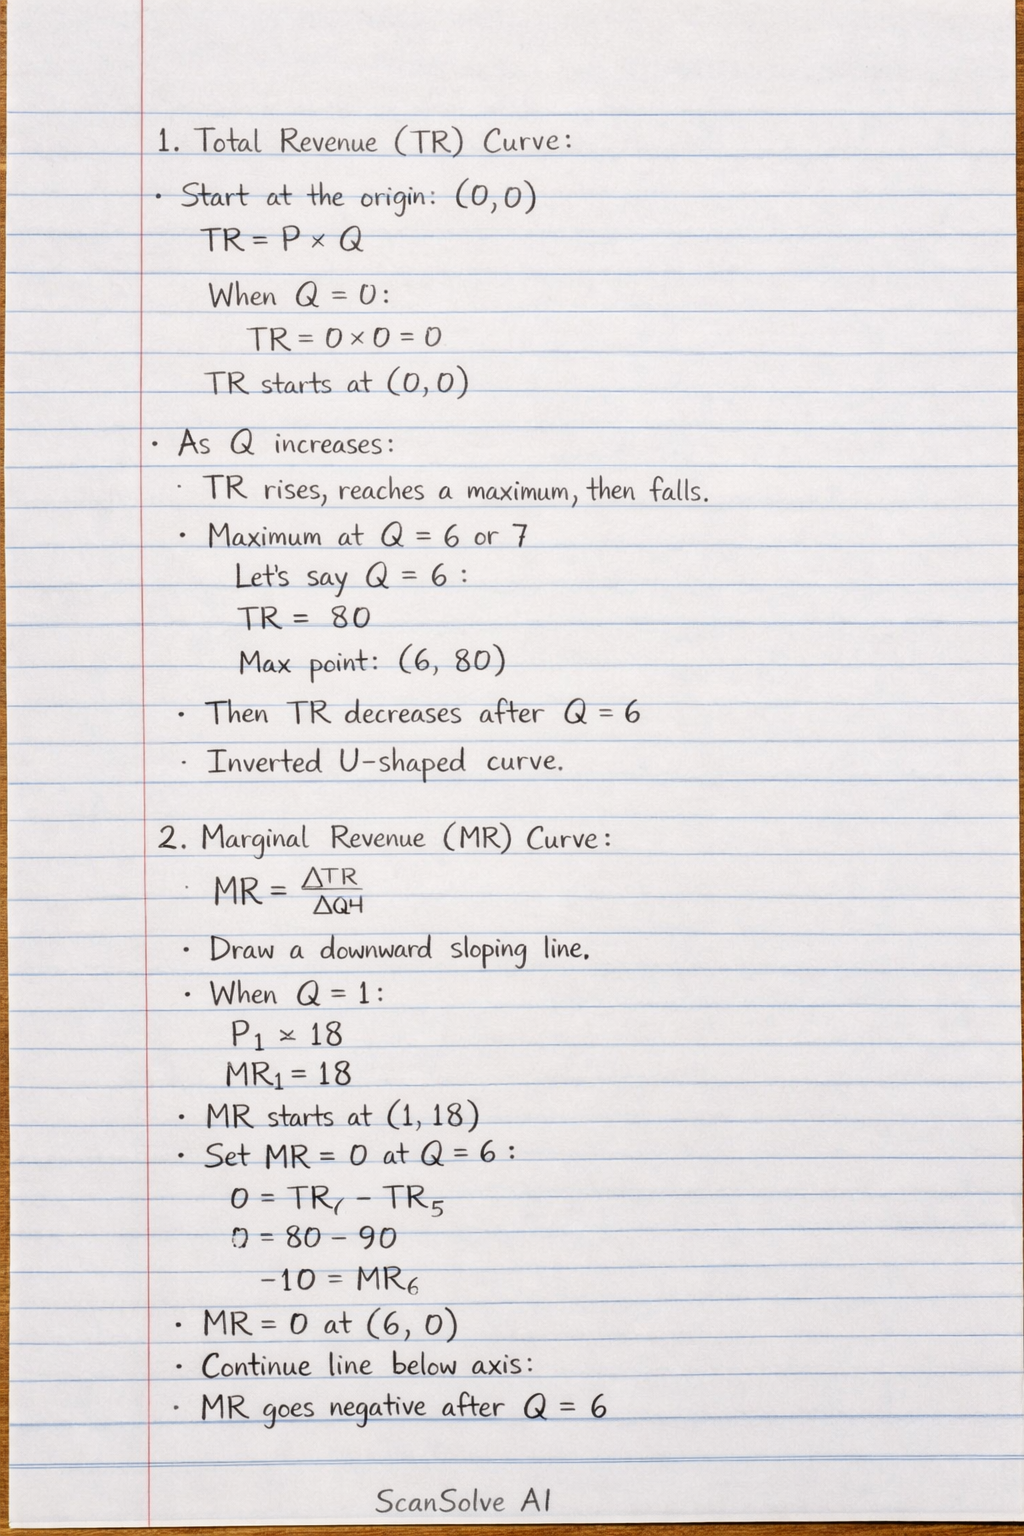 1. Total Revenue (TR) Curve:
• Start at the origin: (0,0)
TR = P × Q
When Q = 0:
TR = 0 × 0 = 0
TR starts at (0,0)
• As Q increases:
· TR rises, reaches a maximum, then falls.
• Maximum at Q = 6 or 7
Let's say Q = 6 :
TR = 80
Max point: (6, 80)
• Then TR decreases after Q = 6
· Inverted U-shaped curve.
2. Marginal Revenue (MR) Curve:
· MR = ΔTR / ΔQ4
• Draw a downward sloping line.
• When Q = 1:
P₁ × 18
MR₁ = 18
• MR starts at (1, 18)
• Set MR = 0 at Q = 6 :
0 = TR – TR₅
0 = 80 – 90
-10 = MR₆
• MR = 0 at (6, 0)
• Continue line below axis:
· MR goes negative after Q = 6
ScanSolve AI